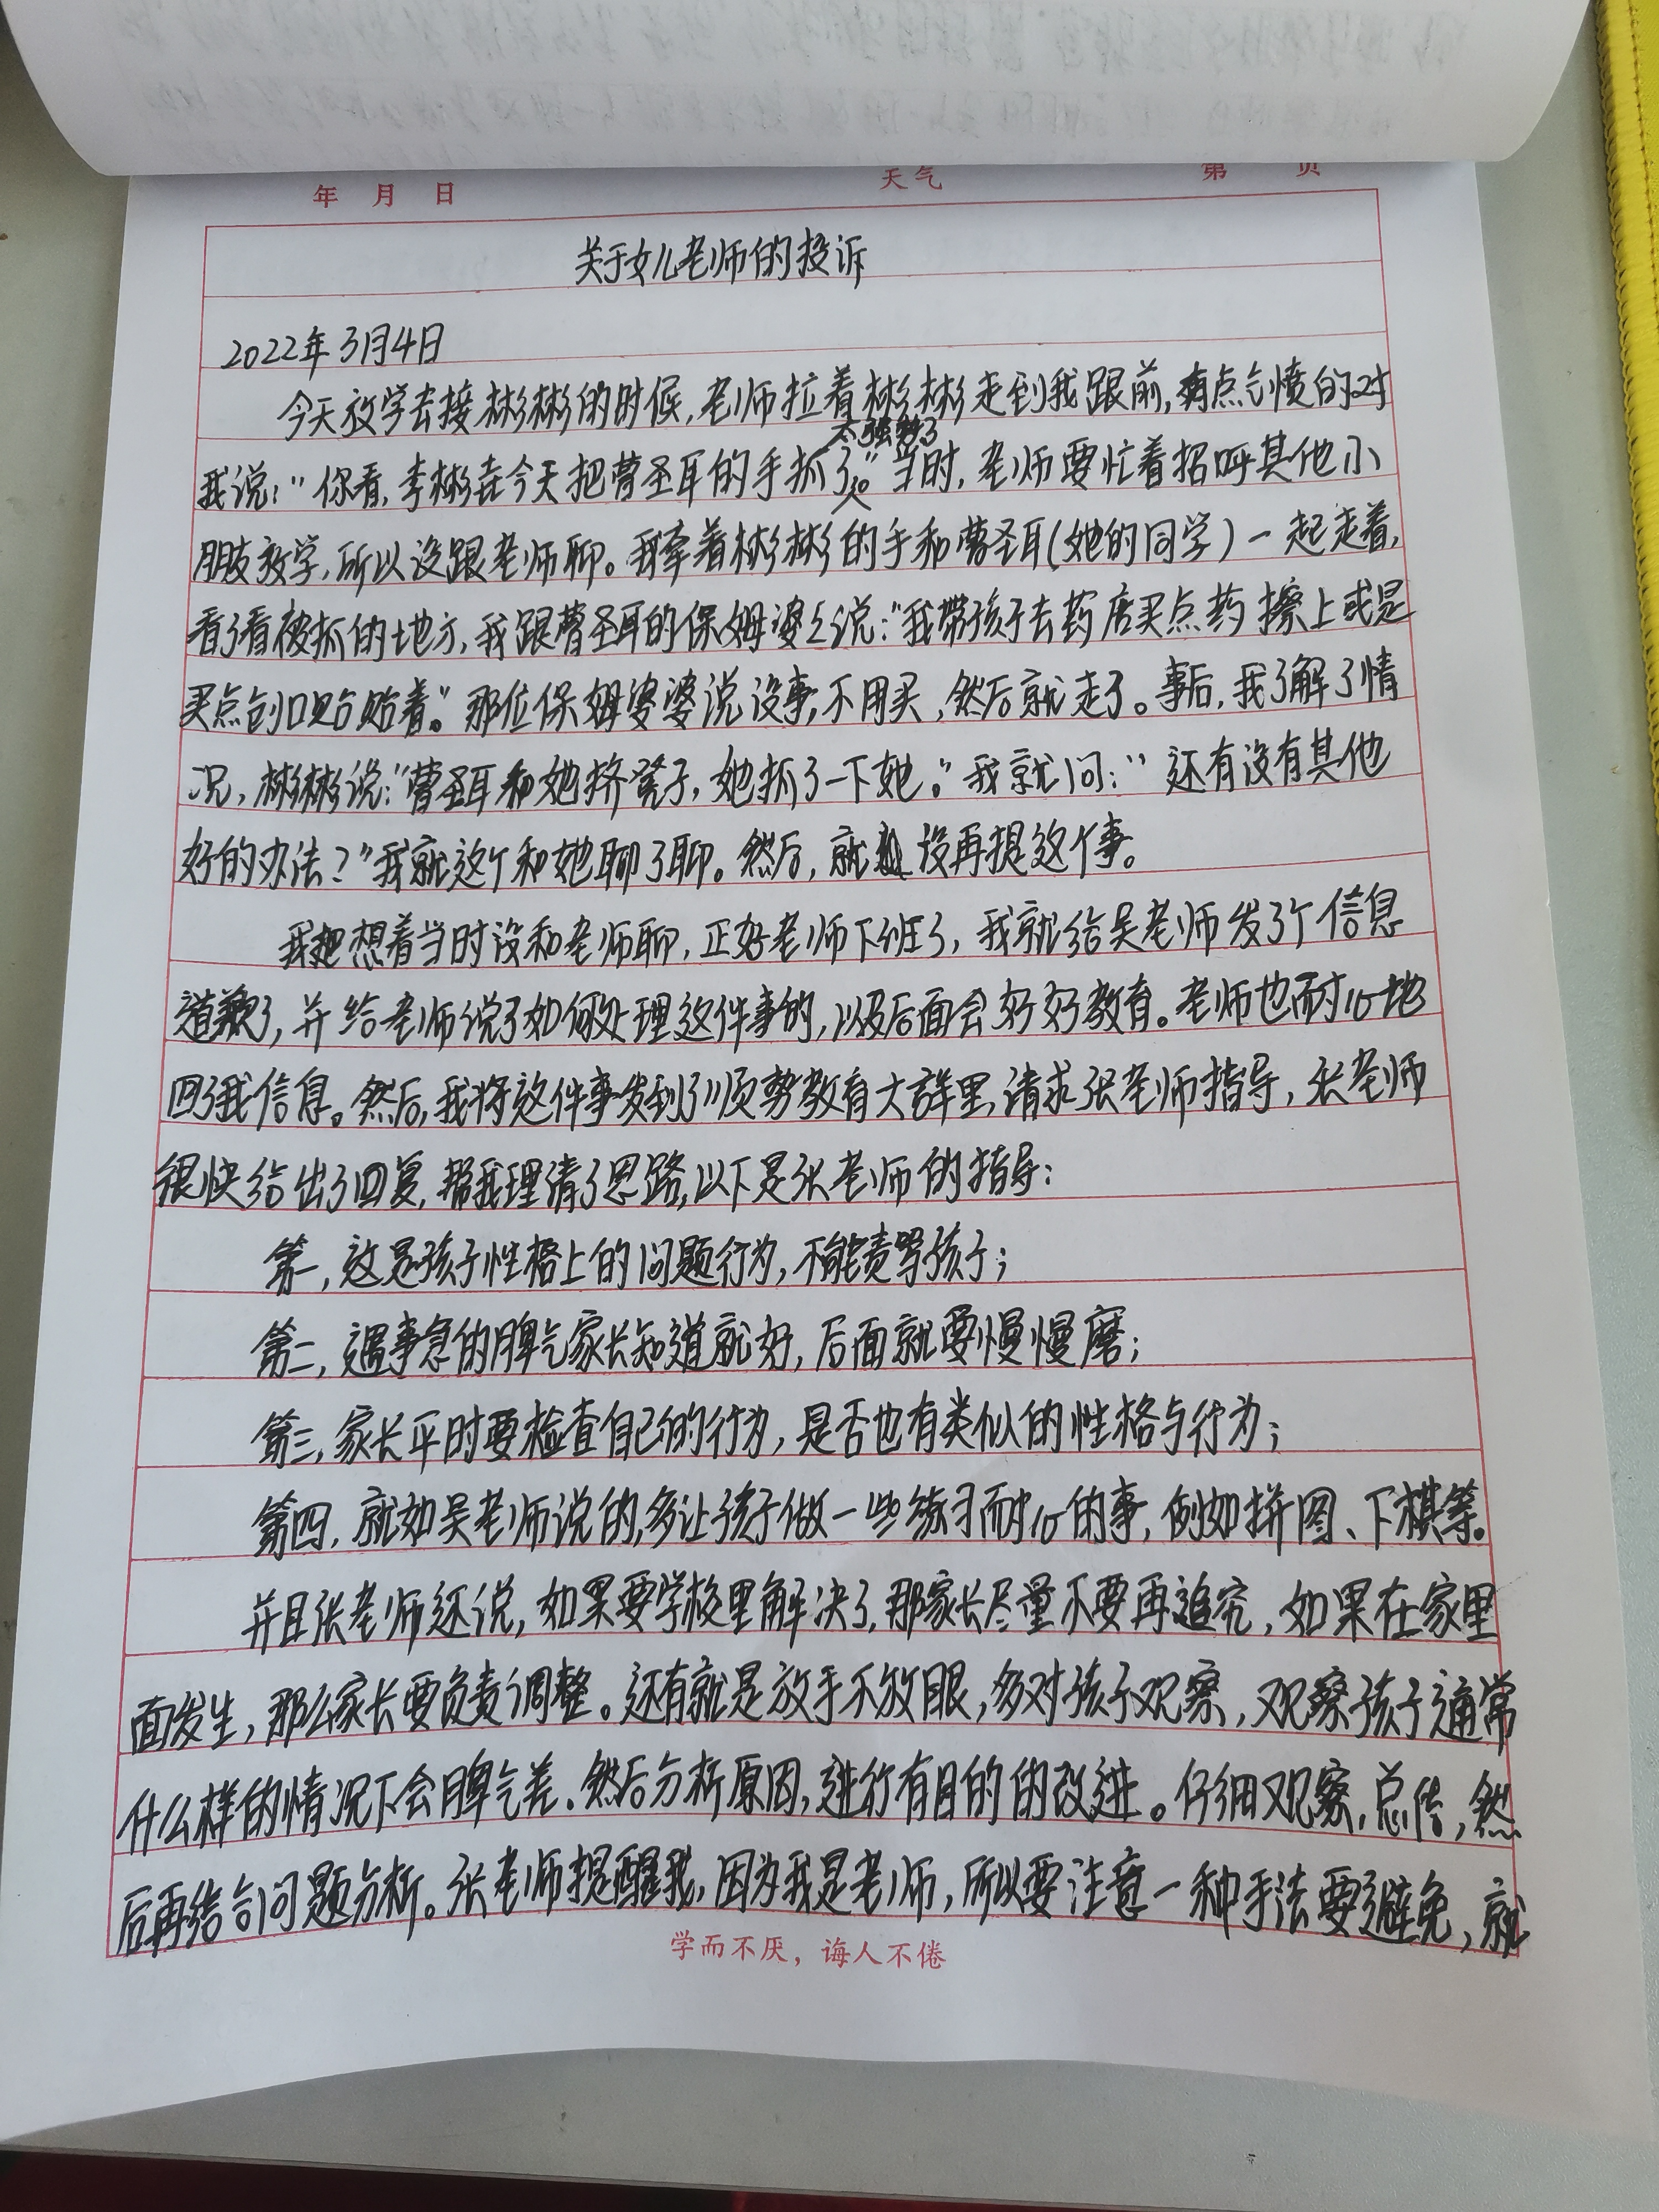 年 月 日 天气 第 页
关于女儿老师的投诉
2022年3月4日
今天放学去接彬彬的时候,老师拉着彬彬走到我跟前,有点气愤的对
太强势了
我说:"你看,李彬垚今天把曹圣耳的手抓了。"当时,老师要忙着招呼其他小
人
朋友放学,所以没跟老师聊。我牵着彬彬的手和曹圣耳(她的同学)一起走着,
看了看被抓的地方,我跟曹圣耳的保姆婆婆说:"我带孩子去药店买点药擦上或是
买点创口贴贴着。"那位保姆婆婆说没事,不用买,然后就走了。事后,我了解了情
况,彬彬说:"曹圣耳和她挤凳子,她抓了一下她。"我就问:"还有没有其他
好的办法?"我就这个和她聊了聊。然后,就没再提这个事。
我想着当时没和老师聊,正好老师下班了,我就给吴老师发了个信息
道歉了,并给老师说了如何处理这件事的,以及后面会好好教育。老师也耐心地
回了我信息。然后,我将这件事发到了顺势教育大群里,请求张老师指导,张老师
很快给出了回复,帮我理清了思路,以下是张老师的指导:
第一,这是孩子性格上的问题行为,不能责骂孩子;
第二,遇事急的脾气家长知道就好,后面就要慢慢磨;
第三,家长平时要检查自己的行为,是否也有类似的性格与行为;
第四,就如吴老师说的,多让孩子做一些练习耐心的事,例如拼图、下棋等。
并且张老师还说,如果要学校里解决了,那家长尽量不要再追究,如果在家里
面发生,那么家长要负责调整。还有就是放手不放眼,多对孩子观察,观察孩子通常
什么样的情况下会脾气差.然后分析原因,进行有目的的改进。仔细观察,总结,然
后再结合问题分析。张老师提醒我,因为我是老师,所以要注意一种手法要避免,就
学而不厌,诲人不倦